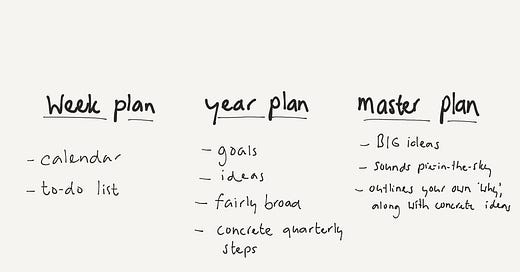 Week plan
- calendar
- to-do list
year plan
- goals
- ideas
- fairly broad
- concrete quarterly
steps
master plan
- BIG ideas
- sounds pie-in-the-sky
- outlines your own 'why',
along with concrete ideas